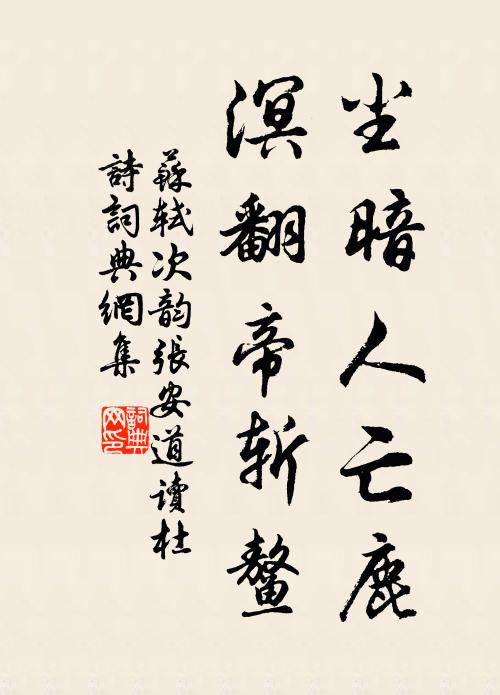 尘暗人亡鹿
溟翻帝斬鳌
蘇軾次韵張安道讀杜
詩詞典網集
詞典网印